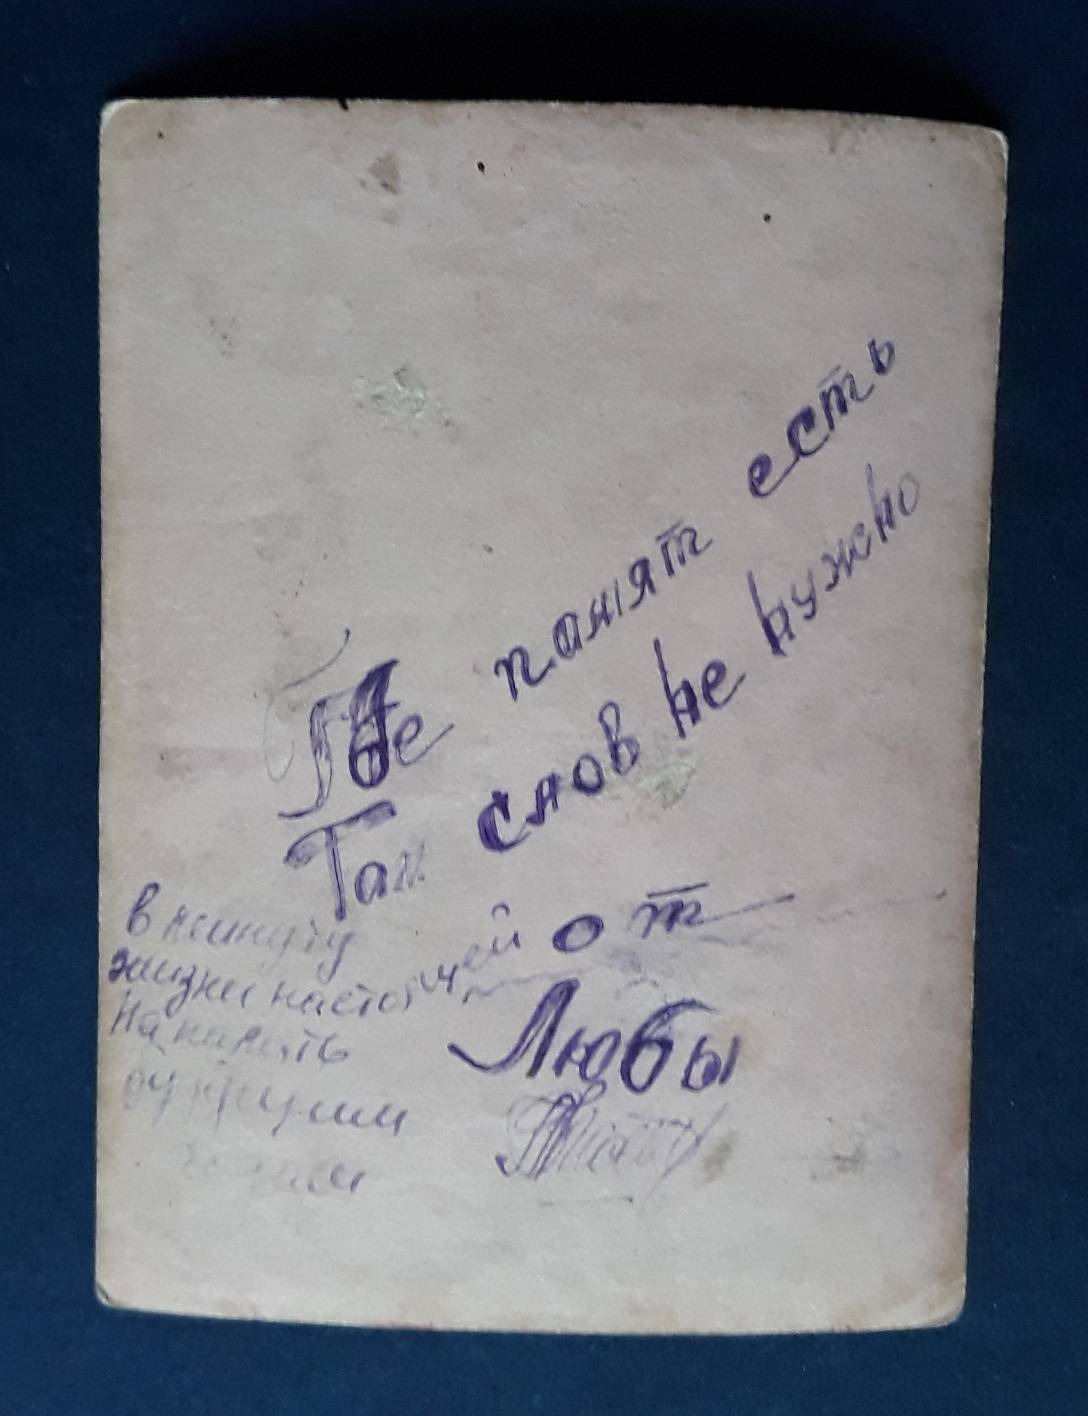 Где памят есть
Там слов не нужно
от
Любы
в минуту
жизни настоящей
На память